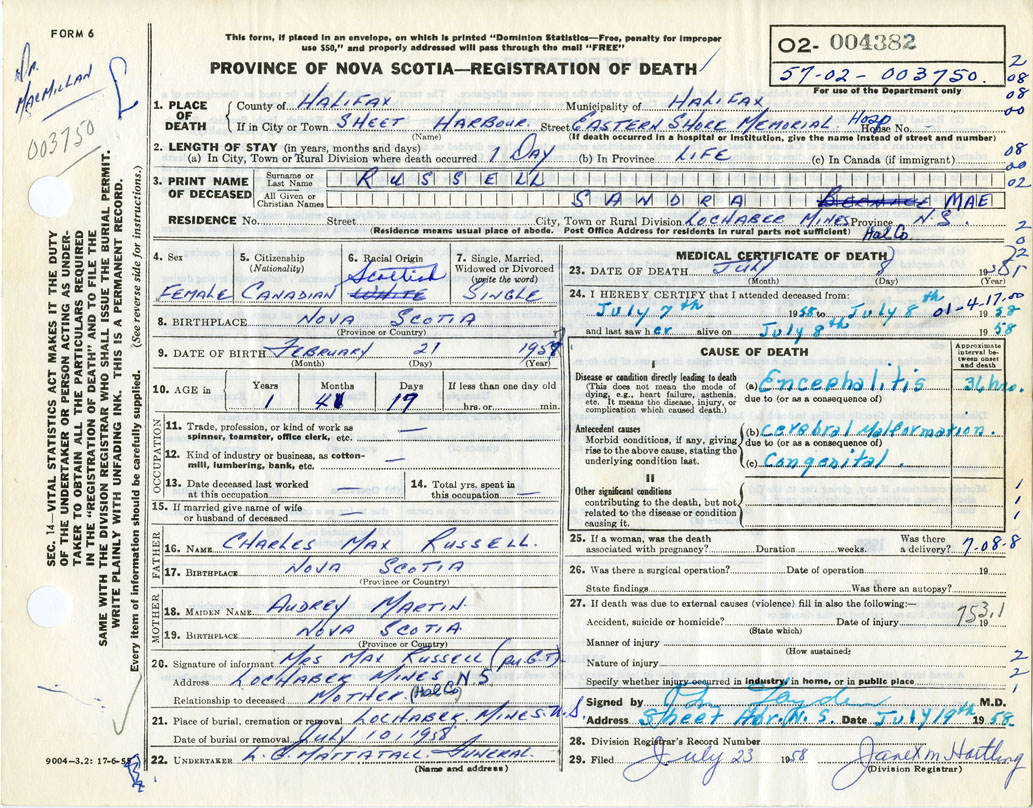 FORM 6
This form, if placed in an envelope, on which is printed "Dominion Statistics—Free, penalty for improper
use $50," and properly addressed will pass through the mail "FREE"
O2- 004382
57-02-003750.
For use of the Department only
Dr.
MacMillan
003750
PROVINCE OF NOVA SCOTIA—REGISTRATION OF DEATH
1. PLACE OF DEATH
County of Halifax Municipality of Halifax
If in City or Town Sheet Harbour Street Eastern Shore Memorial Hosp House No.
(Name) (If death occurred in a hospital or institution, give the name instead of street and number)
2. LENGTH OF STAY (in years, months and days)
(a) In City, Town or Rural Division where death occurred 1 Day (b) In Province Life (c) In Canada (if immigrant)
3. PRINT NAME OF DECEASED
Surname or Last Name RUSSELL
All Given or Christian Names SANDRA Bernice MAE
RESIDENCE No. Street City, Town or Rural Division Lochaber Mines Province N.S.
(Residence means usual place of abode. Post Office Address for residents in rural parts not sufficient) Hal Co.
4. Sex
Female
5. Citizenship
(Nationality)
Canadian
6. Racial Origin
Scottish
White
7. Single, Married,
Widowed or Divorced
(write the word)
Single
8. BIRTHPLACE Nova Scotia
(Province or Country)
9. DATE OF BIRTH February 21 1957
(Month) (Day) (Year)
10. AGE in Years Months Days If less than one day old
1 4 17 hrs. or min.
OCCUPATION
11. Trade, profession, or kind of work as —
spinner, teamster, office clerk, etc.
12. Kind of industry or business, as cotton- —
mill, lumbering, bank, etc.
13. Date deceased last worked
at this occupation —
14. Total yrs. spent in
this occupation —
15. If married give name of wife
or husband of deceased —
FATHER
16. NAME Charles Max Russell.
17. BIRTHPLACE Nova Scotia
(Province or Country)
MOTHER
18. MAIDEN NAME Audrey Martin.
19. BIRTHPLACE Nova Scotia
(Province or Country)
20. Signature of informant Mrs Max Russell
Address Lochaber Mines N.S
Relationship to deceased Mother (Hal Co)
21. Place of burial, cremation or removal Lochaber Mines N.S.
Date of burial or removal July 10, 1958
22. UNDERTAKER L. C. Mattatall Funeral.
(Name and address)
MEDICAL CERTIFICATE OF DEATH
23. DATE OF DEATH July 8 1958
(Month) (Day) (Year)
24. I HEREBY CERTIFY that I attended deceased from:
July 7th 1958 to July 8th 1958
01-4-17.00
and last saw her alive on July 8th 1958
CAUSE OF DEATH
Approximate
interval be-
tween onset
and death
I
Disease or condition directly leading to death
(This does not mean the mode of
dying, e.g., heart failure, asthenia,
etc. It means the disease, injury, or
complication which caused death.)
(a) Encephalitis 36 hrs.
due to (or as a consequence of)
Antecedent causes
Morbid conditions, if any, giving
rise to the above cause, stating the
underlying condition last.
(b) Cerebral Malformation.
due to (or as a consequence of)
(c) Congenital.
II
Other significant conditions
contributing to the death, but not
related to the disease or condition
causing it.
25. If a woman, was the death
associated with pregnancy? Duration weeks. Was there
a delivery? 7.08.8
26. Was there a surgical operation? Date of operation 19
State findings Was there an autopsy?
27. If death was due to external causes (violence) fill in also the following:—
Accident, suicide or homicide? Date of injury 19
753.1
(State which)
Manner of injury
(How sustained)
Nature of injury
Specify whether injury occurred in industry, in home, or in public place
Signed by M.D.
Address Sheet Hbr. N.S. Date July 19th 1958.
28. Division Registrar's Record Number
29. Filed July 23 1958 Janet M Hartling
(Division Registrar)
SEC. 14—VITAL STATISTICS ACT MAKES IT THE DUTY
OF THE UNDERTAKER OR PERSON ACTING AS UNDER-
TAKER TO OBTAIN ALL THE PARTICULARS REQUIRED
IN THE "REGISTRATION OF DEATH" AND TO FILE THE
SAME WITH THE DIVISION REGISTRAR WHO SHALL ISSUE THE BURIAL PERMIT.
WRITE PLAINLY WITH UNFADING INK. THIS IS A PERMANENT RECORD.
Every item of information should be carefully supplied. (See reverse side for instructions.)
9004-3.2: 17-6-55
2
08
08
00
08
00
02
2
2
1
1
1
1
2
2
1